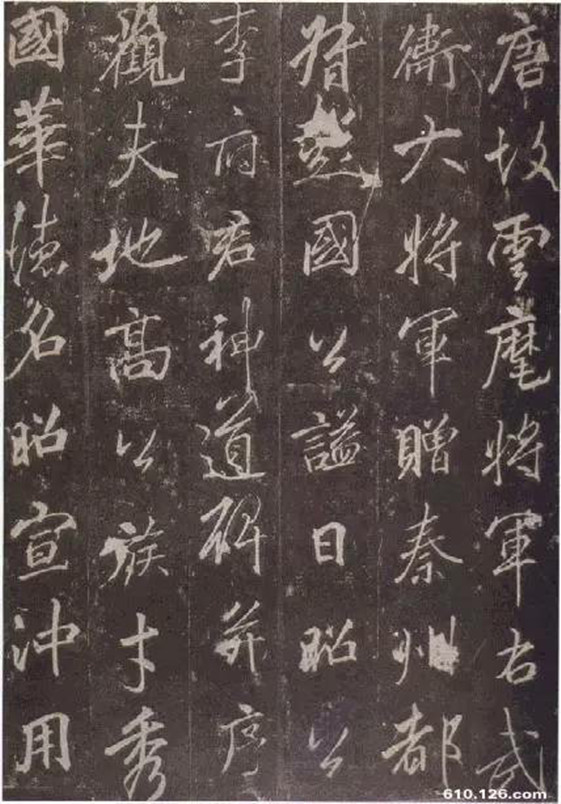 唐故雲麾將軍右武
衛大將軍贈秦州都
督彭國公謚曰昭公
李府君神道碑并序
觀夫地高公族才秀
國華德名昭宣沖用
610.126.com